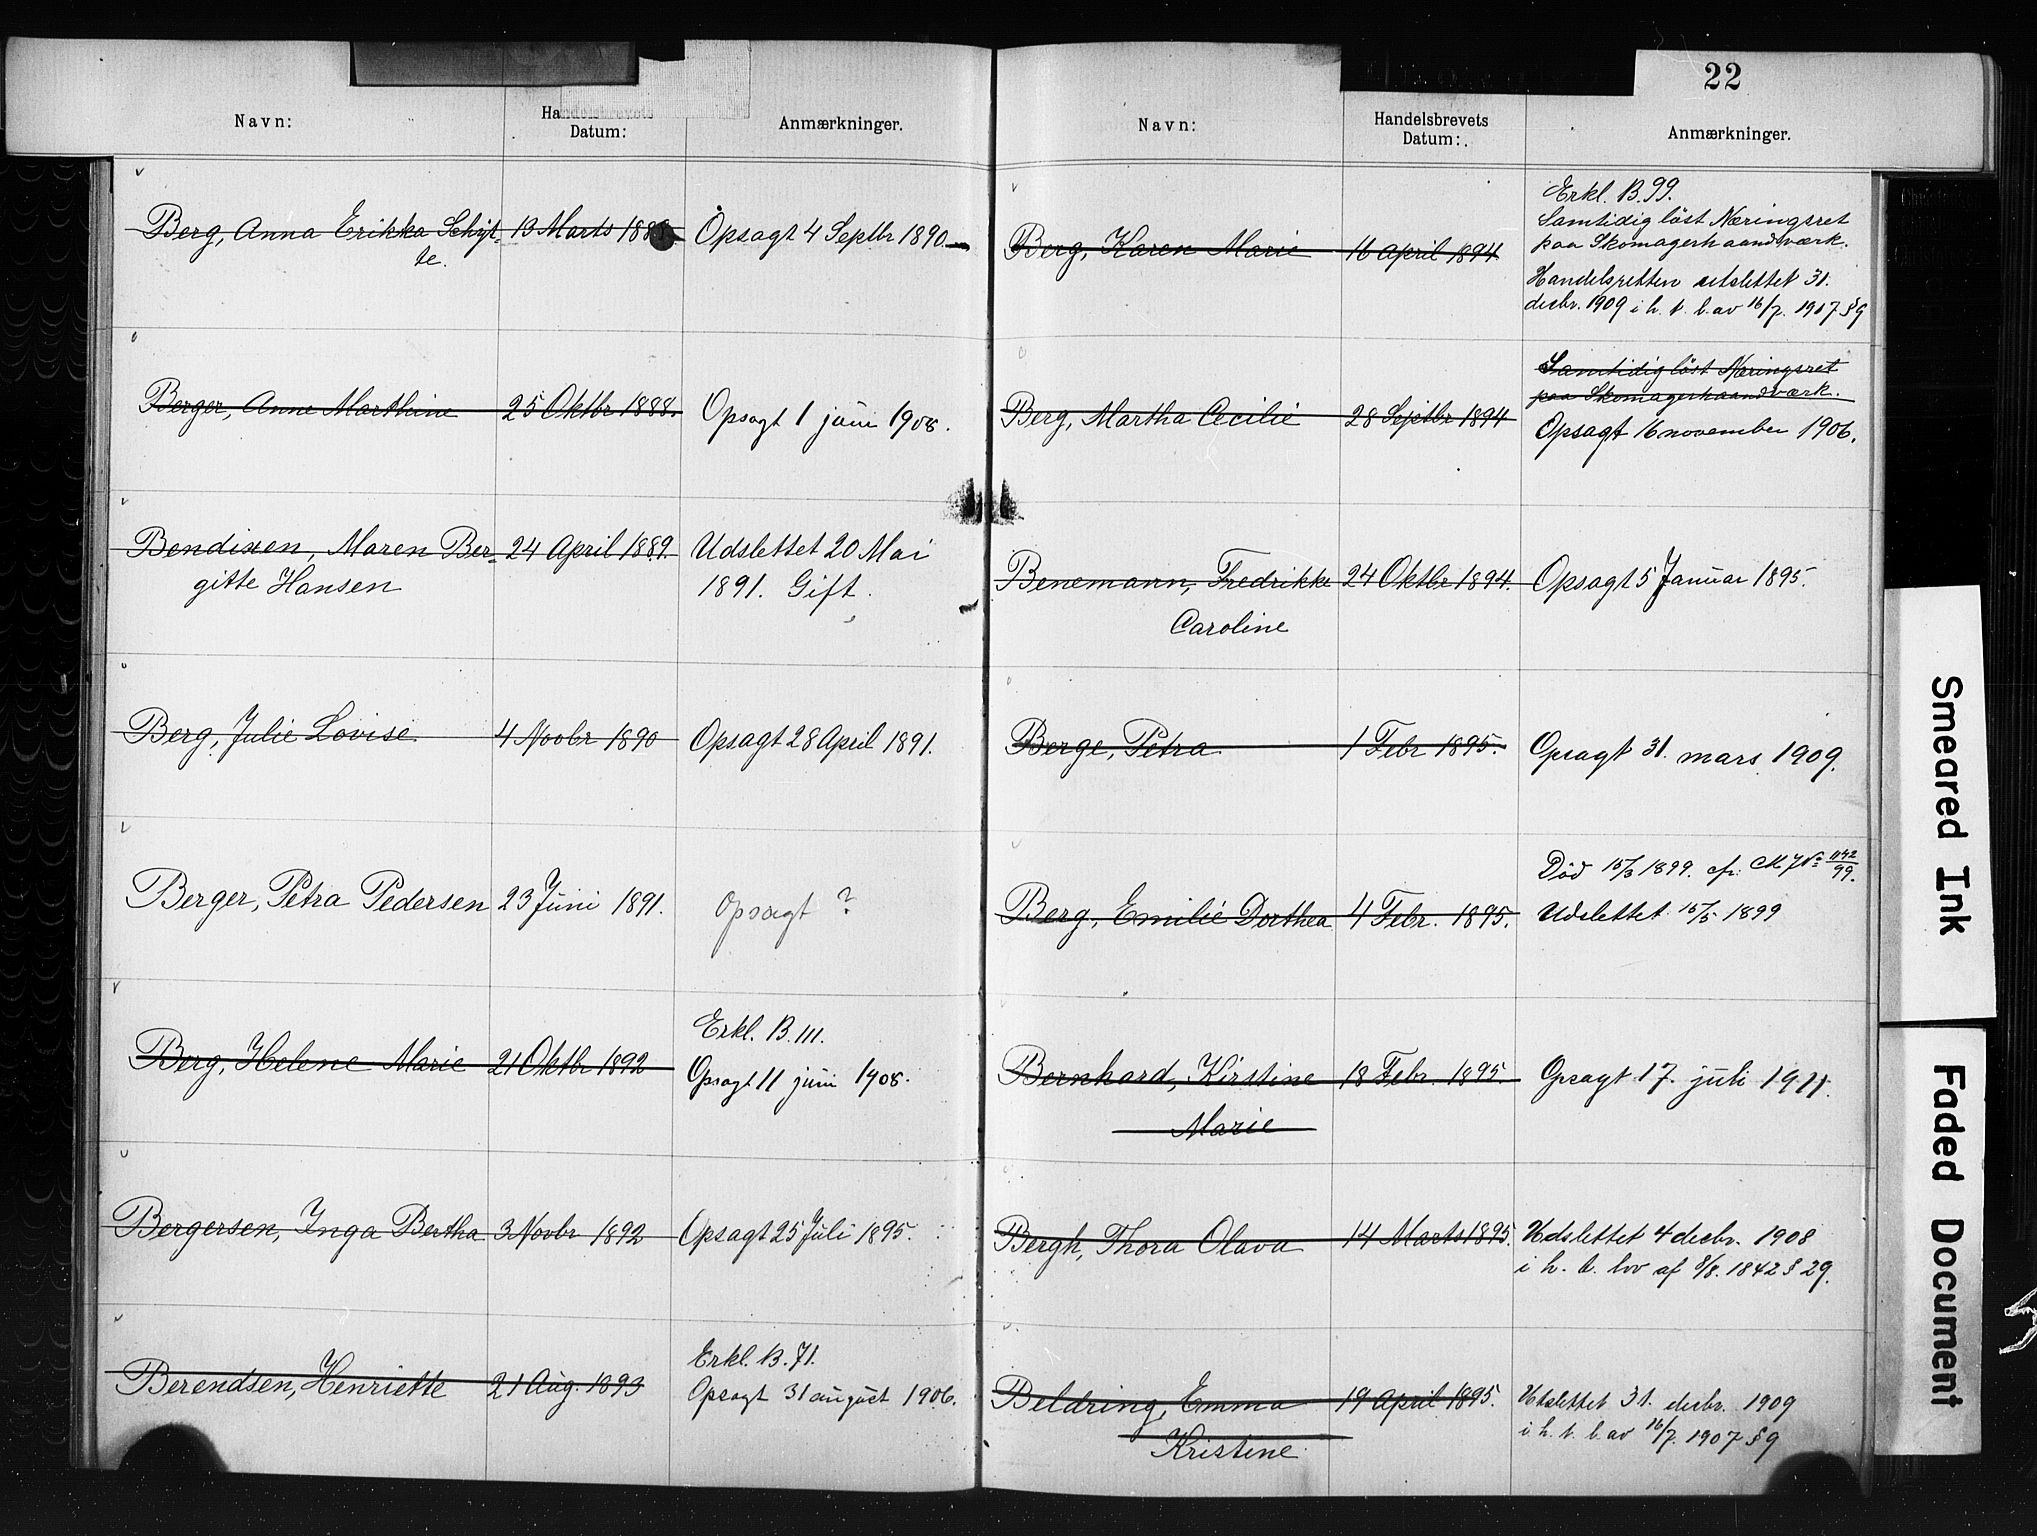 Navn:
Handelsbrevets
Datum:
Anmærkninger.
Berg, Anna Erikka Schyt- 13 Marts 1888 Opsagt 4 Septbr 1890
te.
Berger, Anne Marthine 25 Oktbr 1888. Opsagt 1 juni 1908.
Bendixen, Maren Ber- 24 April 1889. Udslettet 20 Mai
gitte Hansen 1891. Gift.
Berg, Julie Lovise. 4 Novbr 1890 Opsagt 28 April 1891.
Berger, Petra Pedersen 23 Juni 1891. Opsagt ?
Erkl. B. 111.
Berg, Helene Marie 21 Oktbr 1892 Opsagt 11 juni 1908.
Bergersen, Inga Bertha 3 Novbr 1892 Opsagt 25 Juli 1895.
Erkl. B. 71.
Berendsen, Henriette 21 Aug. 1893 Opsagt 31 august 1906.
22
Navn:
Handelsbrevets
Datum:
Anmærkninger.
Erkl. B. 99.
Samtidig löst Næringsret
paa Skomagerhaandværk.
Berg, Karen Marie 16 April 1894.
Handelsretten utslettet 31.
decbr. 1909 i h. t. l. av 16/7. 1907 § 9
Samtidig löst Næringsret
paa Skomagerhaandværk.
Berg, Martha Cecilie 28 Septbr 1894 Opsagt 16 november 1906.
Benemann, Fredrikke 24 Oktbr 1894. Opsagt 5 Januar 1895.
Caroline
Berge, Petra 1 Febr 1895. Opsagt 31. mars 1909.
Död 15/3 1899. cfr. M J No 1142/99.
Berg, Emilie Dorthea 4 Febr. 1895. Udslettet 15/5 1899
Bernhard, Kirstine 18 Febr. 1895. Opsagt 17. juli 1911.
Marie
Bergh, Thora Olava 14 Marts 1895. Udslettet 4 decbr. 1908
i h. t. lov af 8/8. 1842 § 29.
Beldring, Emma 19 April 1895. Utslettet 31. decbr. 1909
Kristine i h. t. l. av 16/7. 1907 § 9
Smeared Ink
Faded Document